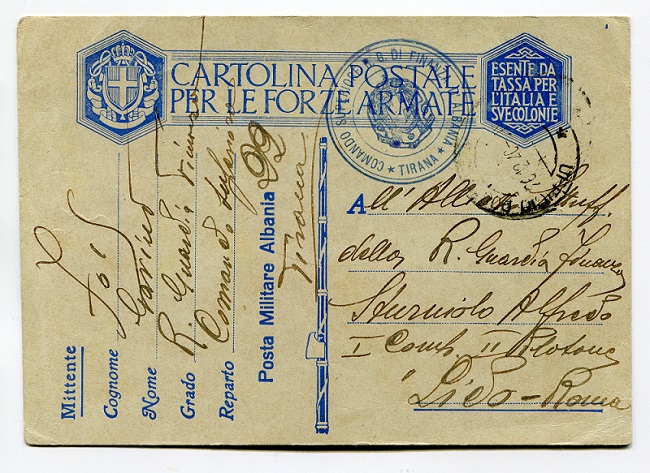 CARTOLINA POSTALE
PER LE FORZE ARMATE
ESENTE DA
TASSA PER
L'ITALIA E
SVE COLONIE
COMANDO DI FINANZA ALBANIA * TIRANA *
All'Allievo Suff.
della R. Guardia Finanza
Sturniolo Alfredo
I Comp. II Plotone
Lido - Roma
Mittente
Cognome
Nome
Grado R. Guardia Finanza
Reparto Comando Superiore
Posta Militare Albania 22
Tirana